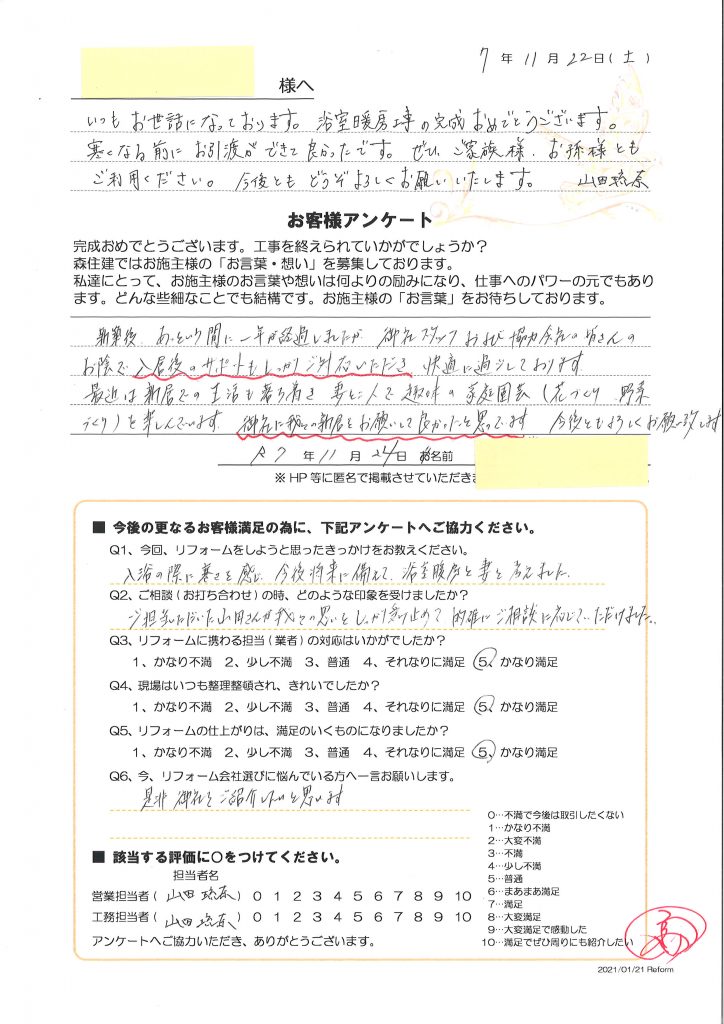 7年11月22日(土)
様へ
いつもお世話になっております。浴室暖房工事の完成おめでとうございます。
寒くなる前にお引渡ができて良かったです。ぜひ、ご家族様、お孫様とも
ご利用ください。今後ともどうぞよろしくお願いいたします。 山田
お客様アンケート
完成おめでとうございます。工事を終えられていかがでしょうか?
森住建ではお施主様の「お言葉・想い」を募集しております。
私達にとって、お施主様のお言葉や想いは何よりの励みになり、仕事へのパワーの元でもあり
ます。どんな些細なことでも結構です。お施主様の「お言葉」をお待ちしております。
新築後、あっという間に一年が経過しましたが 御社スタッフおよび協力会社の皆さんの
お陰で入居後のサポートもしっかりご対応いただき 快適に過ごしております
最近は新居での生活も落ち着き 妻と二人で趣味の家庭園芸(花づくり 野菜
づくり)を楽しんでいます。 御社に我々の新居をお願いして良かったと思っています 今後ともよろしくお願い致します
R7年11月24日 お名前
※HP等に匿名で掲載させていただきま
■ 今後の更なるお客様満足の為に、下記アンケートへご協力ください。
Q1、今回、リフォームをしようと思ったきっかけをお教えください。
入浴の際に寒さを感じ 今後将来に備えて、浴室暖房を妻と考えました。
Q2、ご相談(お打ち合わせ)の時、どのような印象を受けましたか?
ご担当いただいた山田さんが我々の思いをしっかり受け止めて 的確にご相談に応じていただけました。
Q3、リフォームに携わる担当(業者)の対応はいかがでしたか?
1、かなり不満 2、少し不満 3、普通 4、それなりに満足 5、かなり満足
Q4、現場はいつも整理整頓され、きれいでしたか?
1、かなり不満 2、少し不満 3、普通 4、それなりに満足 5、かなり満足
Q5、リフォームの仕上がりは、満足のいくものになりましたか?
1、かなり不満 2、少し不満 3、普通 4、それなりに満足 5、かなり満足
Q6、今、リフォーム会社選びに悩んでいる方へ一言お願いします。
是非 御社をご紹介したいと思います
0…不満で今後は取引したくない
1…かなり不満
2…大変不満
3…不満
4…少し不満
5…普通
6…まあまあ満足
7…満足
8…大変満足
9…大変満足で感動した
10…満足でぜひ周りにも紹介したい
■ 該当する評価に○をつけてください。
担当者名
営業担当者( 山田 ) 0 1 2 3 4 5 6 7 8 9 10
工務担当者( 山田 ) 0 1 2 3 4 5 6 7 8 9 10
アンケートへご協力いただき、ありがとうございます。
2021/01/21 Reform